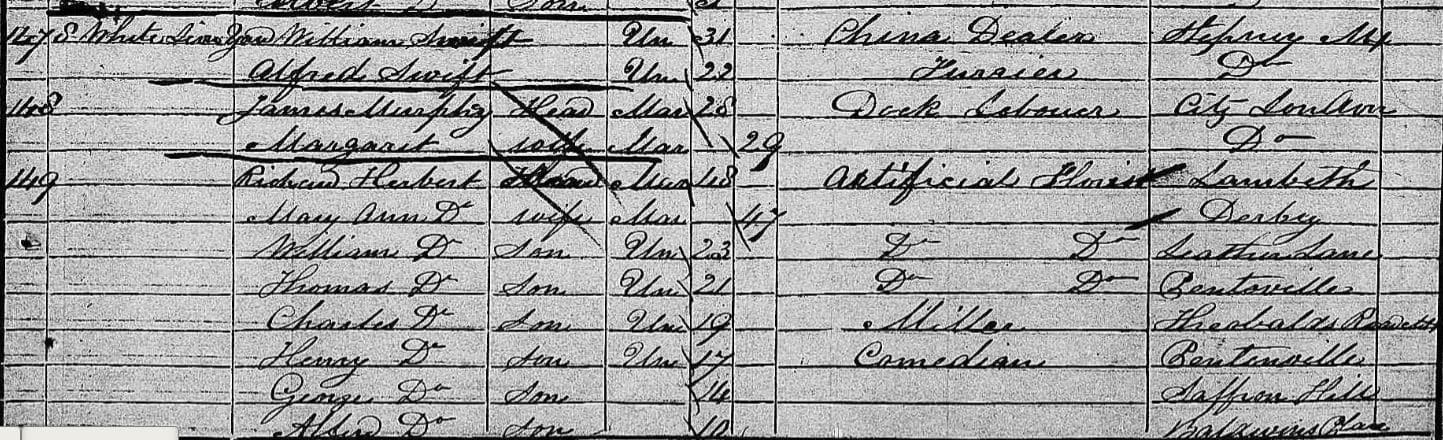 Albert Do Son
147 8 White Lion Yard William Swift Un 31 China Dealer Stepney Mx
Alfred Swift Un 22 Furrier Do
148 James Murphy Head Mar 28 Dock Labouer City London
Margaret wife Mar 29 Do
149 Richard Herbert Head Mar 48 Artificial Florist Lambeth
Mary Ann Do wife Mar 47 Derby
William Do Son Un 23 Do Do Leather Lane
Thomas Do Son Un 21 Do Do Pentoville
Charles Do Son Un 19 Miller Theobalds
Henry Do Son Un 17 Comedian Pentinville
George Do Son 14 Saffron Hill
Do Son 10 Baldwins